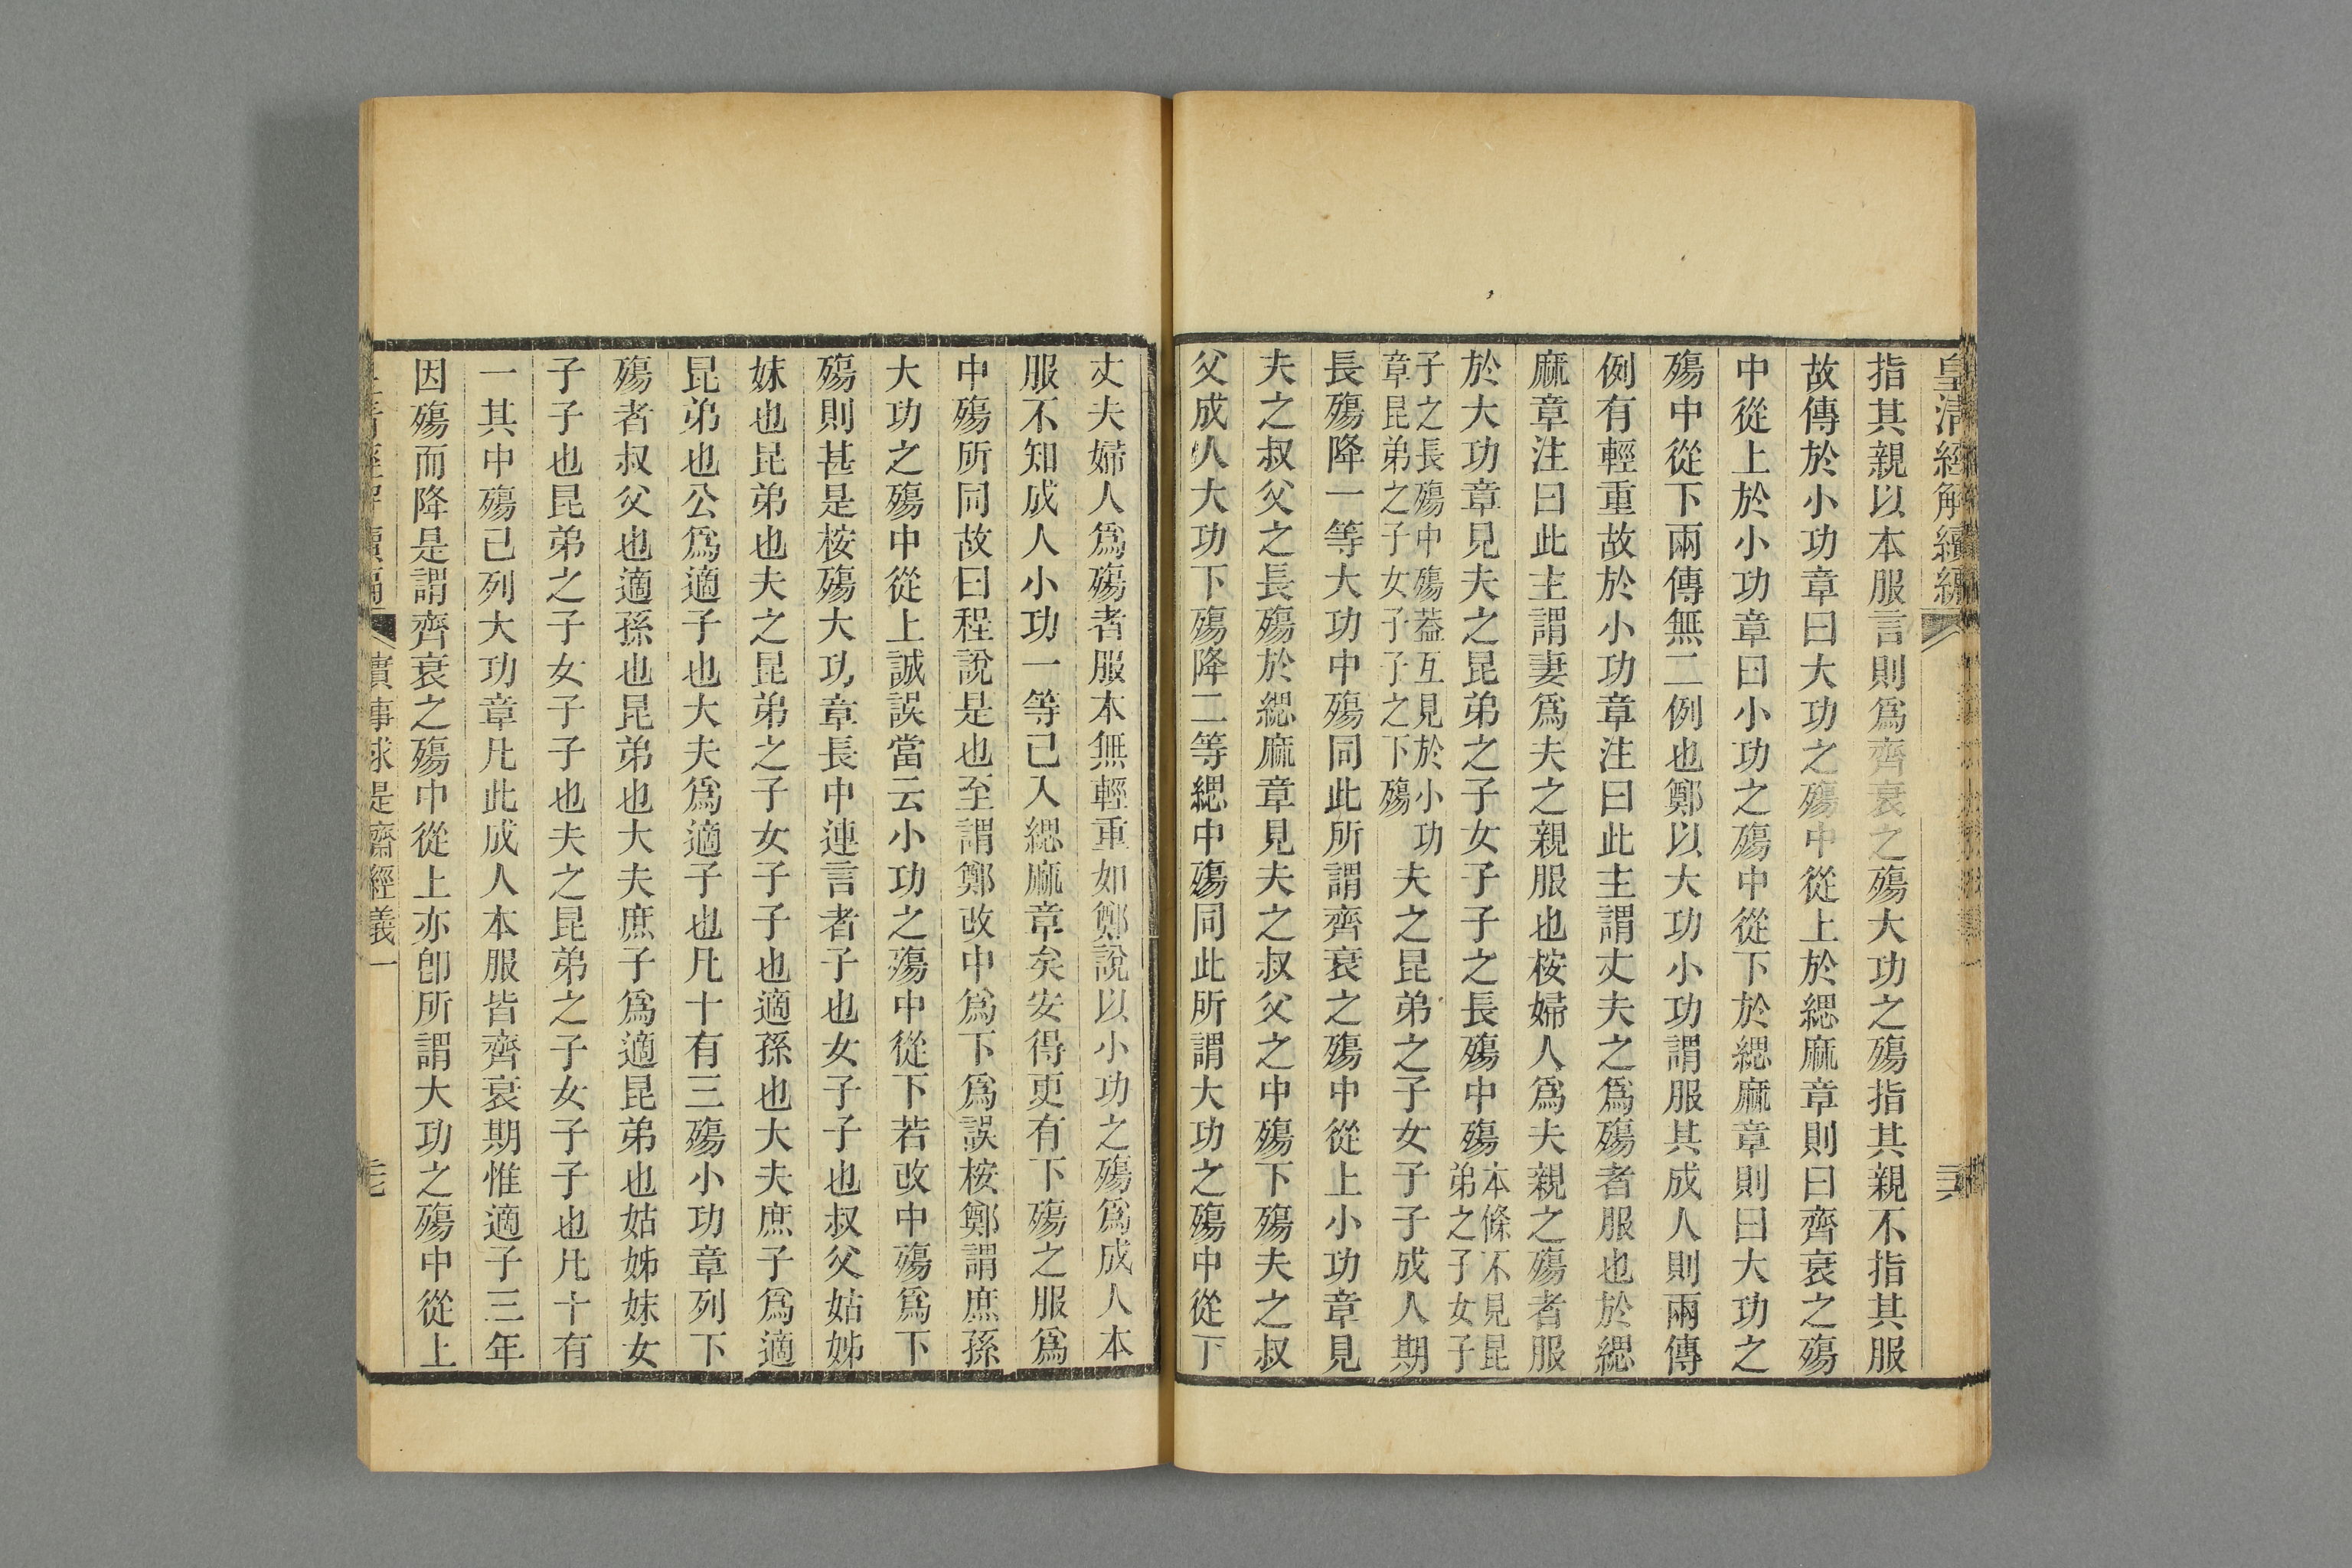 皇清經解續編
指其親以本服言則爲齊衰之殤大功之殤指其親不指其服
故傳於小功章曰大功之殤中從上於緦麻章則曰齊衰之殤
中從上於小功章曰小功之殤中從下於緦麻章則曰大功之
殤中從下兩傳無二例也鄭以大功小功謂服其成人則兩傳
例有輕重故於小功章注曰此主謂丈夫之爲殤者服也於緦
麻章注曰此主謂妻爲夫之親服也桉婦人爲夫親之殤者服
於大功章見夫之昆弟之子女子子之長殤中殤本條不見昆弟之子女子
子之長殤中殤葢互見於小功章昆弟之子女子子之下殤夫之昆弟之子女子子成人期
長殤降一等大功中殤同此所謂齊衰之殤中從上小功章見
夫之叔父之長殤於緦麻章見夫之叔父之中殤下殤夫之叔
父成人大功下殤降二等緦中殤同此所謂大功之殤中從下
丈夫婦人爲殤者服本無輕重如鄭說以小功之殤爲成人本
服不知成人小功一等已入緦麻章矣安得更有下殤之服爲
中殤所同故曰程說是也至謂鄭改中爲下爲誤桉鄭謂庶孫
大功之殤中從上誠誤當云小功之殤中從下若改中殤爲下
殤則甚是桉殤大功章長中連言者子也女子子也叔父姑姊
妹也昆弟也夫之昆弟之子女子子也適孫也大夫庶子爲適
昆弟也公爲適子也大夫爲適子也凡十有三殤小功章列下
殤者叔父也適孫也昆弟也大夫庶子爲適昆弟也姑姊妹女
子子也昆弟之子女子子也夫之昆弟之子女子子也凡十有
一其中殤已列大功章凡此成人本服皆齊衰期惟適子三年
因殤而降是謂齊衰之殤中從上亦卽所謂大功之殤中從上
實事求是齋經義一